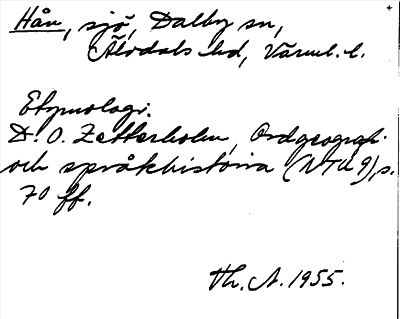 Hån, sjö, Dalby sn,
Älvdals hd, Värml. l.
Etymologi.
D. O. Zetterholm, Ordgeografi
och språkhistoria (NTU 9), s.
70 ff.
Th. A. 1955.